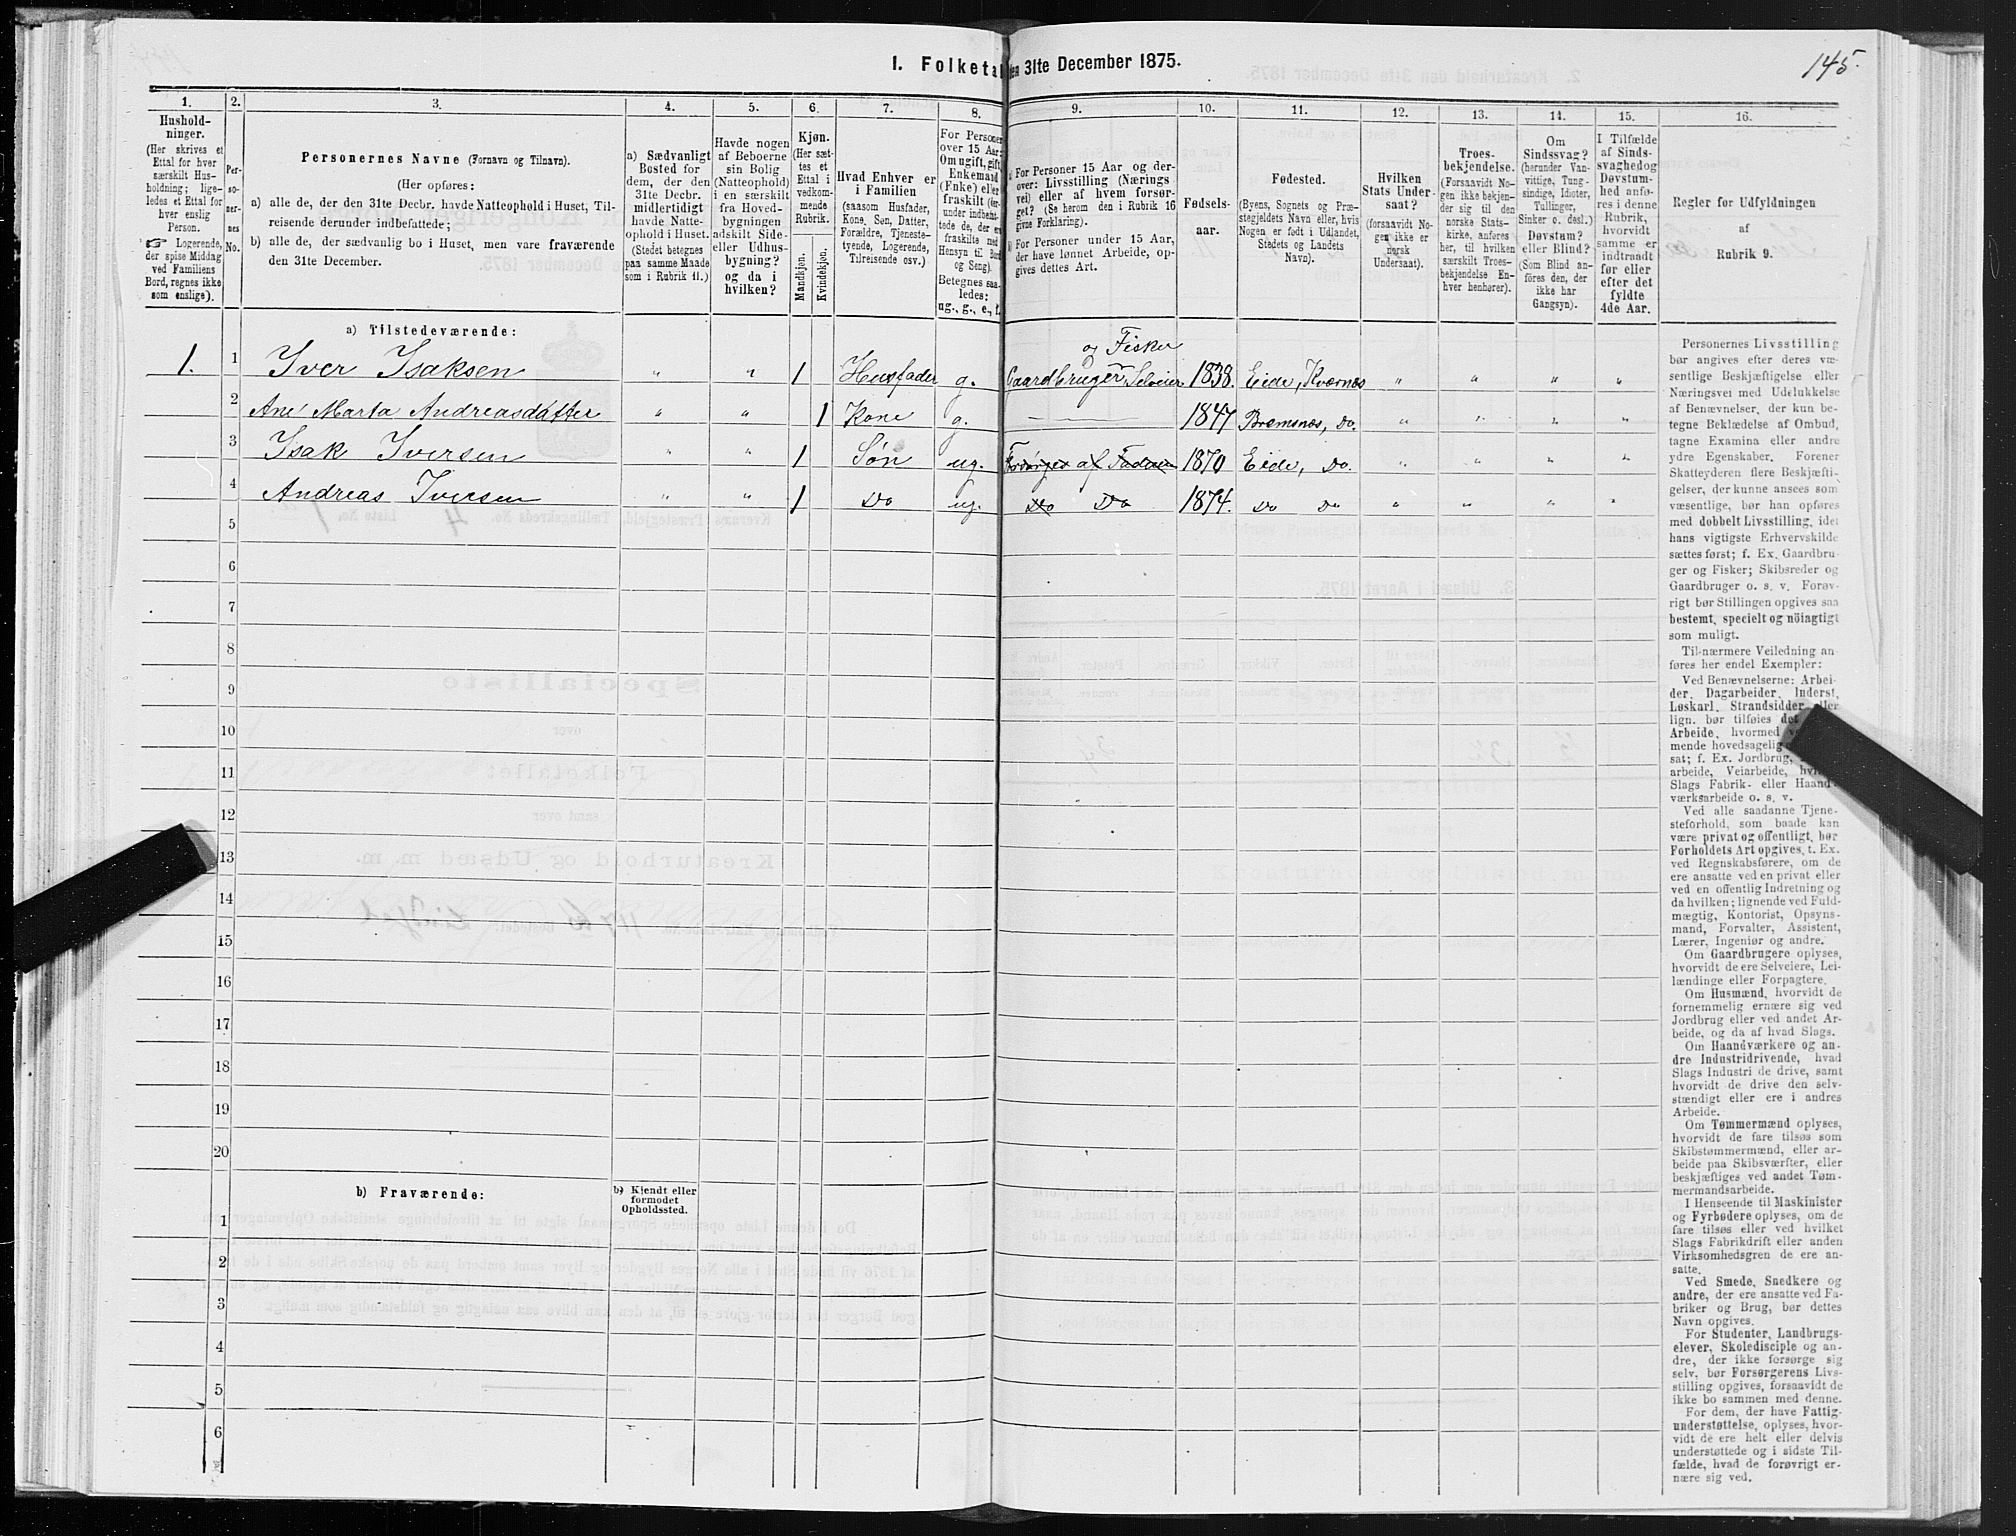 145.
1. Folketa den 31te December 1875.
1. 2. 3. 4. 5. 6. 7. 8. 9. 10. 11. 12. 13. 14. 15. 16.
Hushold-
ninger.
(Her skrives et
Ettal for hver
særskilt Hus-
holdning; lige-
ledes et Ettal for
hver enslig
Person.
☞ Logerende,
der spise Middag
ved Familiens
Bord, regnes ikke
som enslige).
Per-
so-
ner-
nes
No.
Personernes Navne (Fornavn og Tilnavn).
(Her opføres:
a) alle de, der den 31te Decbr. havde Natteophold i Huset, Til-
reisende derunder indbefattede;
b) alle de, der sædvanlig bo i Huset, men vare fraværende
den 31te December.
a) Sædvanligt
Bosted for
dem, der den
31te Decbr.
midlertidigt
havde Natte-
ophold i Huset.
(Stedet betegnes
paa samme Maade
som i Rubrik 11.)
Havde nogen
af Beboerne
sin Bolig
(Natteophold)
i en særskilt
fra Hoved-
bygningen
adskilt Side-
eller Udhus-
bygning?
og da i
hvilken?
Kjøn.
(Her sæt-
tes et
Ettal i
vedkom-
mende
Rubrik.
Mandkjøn.
Kvindekjøn.
Hvad Enhver er
i Familien
(saasom Husfader,
Kone, Søn, Datter,
Forældre, Tjeneste-
tyende, Logerende,
Tilreisende osv.)
For Personer
over 15 Aar:
Om ugift, gift,
Enkemand
(Enke) eller
fraskilt (der-
under indbefat-
tede de, der ere
fraskilte med
Hensyn til Bord
og Seng).
Betegnes saa-
ledes:
ug., g., e., f.
For Personer 15 Aar og der-
over: Livsstilling (Nærings-
vei) eller af hvem forsør-
get? (Se herom den i Rubrik 16
givne Forklaring).
For Personer under 15 Aar,
der have lønnet Arbeide, op-
gives dettes Art.
Fødsels-
aar.
Fødested.
(Byens, Sognets og Præ-
stegjeldets Navn eller, hvis
Nogen er født i Udlandet,
Stedets og Landets
Navn).
Hvilken
Stats Under-
saat?
(forsaavidt No-
gen ikke er
norsk
Undersaat).
Troes-
bekjendelse.
(Forsaavidt No-
gen ikke bekjen-
der sig til den
norske Stats-
kirke, anføres
her, til hvilken
særskilt Troes-
bekjendelse En-
hver henhører).
Om
Sindssvag?
(herunder Van-
vittige, Tung-
sindige, Idioter,
Tullinger,
Sinker o. desl.)
Døvstum?
eller Blind?
(Som Blind an-
føres den, der
ikke har
Gangsyn).
I Tilfælde
af Sinds-
svaghed og
Døvstum-
hed anfø-
res i denne
Rubrik,
hvorvidt
samme er
indtraadt
før eller
efter det
fyldte
4de Aar.
Regler før Udfyldningen
af
Rubrik 9.
a) Tilstedeværende:
og Fisker
1. 1 Iver Isaksen " " 1 Husfader g. Gaardbruger Selveier 1838. Eide, Kværnes " " " "
2 Ane Marta Andreasdatter " " 1 Kone g. 1847 Bremsnes, Do. " " " "
3 Isak Iversen " " 1 Søn ug. Forsørges af Faderen 1870 Eide, Do. " " " "
4 Andreas Iversen " " 1 Do ug. Do Do 1874. Do Do " " " "
5
6
7
8
9
10
11
12
13
14
15
16
17
18
19
20
b) Fraværende:
b) Kjendt eller
formodet
Opholdssted.
1
2
3
4
5
6
Personernes Livsstilling
bør angives efter deres væ-
sentlige Beskjæftigelse eller
Næringsvei med Udelukkelse
af Benævnelser, der kun be-
tegne Beklædelse af Ombud,
tagne Examina eller andre
ydre Egenskaber. Forener
Skatteyderen flere Beskjæfti-
gelser, der kunne ansees som
væsentlige, bør han opføres
med dobbelt Livsstilling, idet
hans vigtigste Erhvervskilde
sættes først; f. Ex. Gaardbru-
ger og Fisker; Skibsreder og
Gaardbruger o. s. v. Forøv-
rigt bør Stillingen opgives saa
bestemt, specielt og nöiagtigt
som muligt.
Til nærmere Veiledning an-
føres her endel Exempler:
Ved Benævnelserne: Arbei-
der, Dagarbeider, Inderst,
Løskarl, Strandsidder eller
lign. bør tilføies det
Arbeide, hvormed
mende hovedsagelig
sat; f. Ex. Jordbrug,
arbeide, Veiarbeide,
Slags Fabrik- eller Haand-
værksarbeide o. s. v.
Ved alle saadanne Tjene-
steforhold, som baade kan
være privat og offentligt, bør
Forholdets Art opgives, t. Ex.
ved Regnskabsførere, om de
ere ansatte ved en privat eller
ved en offentlig Indretning og
da hvilken; lignende ved Fuld-
mægtig, Kontorist, Opsyns-
mand, Forvalter, Assistent,
Lærer, Ingeniør og andre.
Om Gaardbrugere oplyses,
hvorvidt de ere Selveiere, Lei-
lændinge eller Forpagtere.
Om Husmænd, hvorvidt de
fornemmelig ernære sig ved
Jordbrug eller ved andet Ar-
beide, og da af hvad Slags.
Om Haandværkere og an-
dre Industridrivende, hvad
Slags Industri de drive, samt
hvorvidt de drive den selv-
stændigt eller ere i andres
Arbeide.
Om Tømmermænd oplyses,
hvorvidt de fare tilsøs som
Skibstømmermænd, eller ar-
beide paa Skibsværfter, eller
beskjæftiges ved andet Tøm-
mermandsarbeide.
I Henseende til Maskinister
og Fyrbødere oplyses, om de
fare tilsøs eller ved hvilket
Slags Fabrikdrift eller anden
Virksomhedsgren de ere an-
satte.
Ved Smede, Snedkere og
andre, der ere ansatte ved Fa-
briker og Brug, bør dettes
Navn opgives.
For Studenter, Landbrugs-
elever, Skoledisciple og an-
dre, der ikke forsørge sig
selv, bør Forsørgerens Livs-
stilling opgives, forsaavidt de
ikke bo sammen med denne.
For dem, der have Fattig-
understøttelse, oplyses, hvor-
vidt de ere helt eller delvis
understøttede og i sidste Til-
fælde, hvad de forøvrigt er-
nære sig ved.